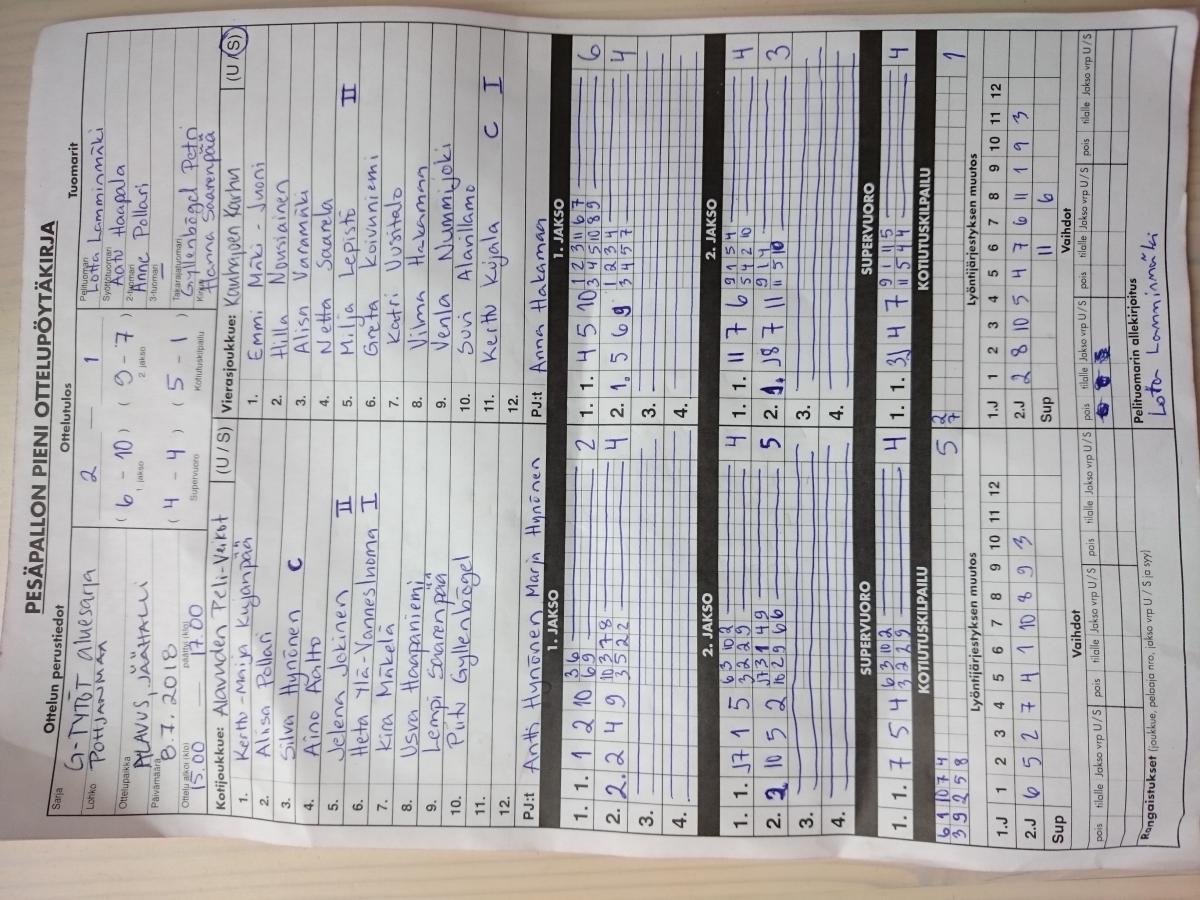 PESÄPALLON PIENI OTTELUPÖYTÄKIRJA
Ottelun perustiedot
Sarja
G-TYTÖT aluesarja
Lohko
POHJANMAA
Ottelupaikka
ALAVUS, JÄÄHALLI
Päivämäärä
8.7.2018
Ottelu alkoi (klo)
15.00
päättyi (klo)
17.00
Ottelutulos
2 1
( 6 - 10 ) ( 9 - 7 )
1 jakso 2 jakso
( 4 - 4 ) ( 5 - 1 )
Supervuoro Kotiutuskilpailu
Tuomarit
Pelituomari
Lotta Lamminmäki
Syöttötuomari
Aatu Haapala
2-tuomari
Anne Pollari
3-tuomari
Takarajatuomari
Gyllenbögel Petri
Kirjuri
Hanna Saarenpää
Kotijoukkue: Alavuden Peli-Veikot (U / S)
1. Kerttu-Maija Kujanpää
2. Alisa Pollari
3. Silva Hynönen C
4. Aino Aalto
5. Jelena Jokinen II
6. Heta Ylä-Vannesluoma I
7. Kira Mäkelä
8. Usva Haapaniemi
9. Lempi Saarenpää
10. Piitu Gyllenbögel
11.
12.
PJ:t Antti Hynönen Marja Hynönen
Vierasjoukkue: Kauhajoen Karhu (U / S)
1. Emmi Mäki-Juoni
2. Hilla Nousiainen
3. Alisa Varamäki
4. Netta Saarela
5. Milja Lepistö II
6. Greta Koivuniemi
7. Katri Uusitalo
8. Vilma Hakamaa
9. Venla Nummijoki
10. Suvi Alavillamo
11. Kerttu Kujala C I
12.
PJ:t Anna Hakamaa
1. JAKSO 1. JAKSO
1. 1. 1 2 10 2
2. 2. 2 4 9 4
3.
4.
1. 1. 4 5 10 6
2. 1. 5 6 9 4
3.
4.
2. JAKSO 2. JAKSO
1. 1. 1 5 4
2. 2. 10 5 2 5
3.
4.
1. 1. 11 7 6 4
2. 1. 8 7 11 3
3.
4.
SUPERVUORO SUPERVUORO
1. 1. 7 5 4 4
1. 1. 4 7 4
KOTIUTUSKILPAILU KOTIUTUSKILPAILU
6 1 10 7 4
3 9 2 5 8 5
2
7 1
Lyöntijärjestyksen muutos
1.J 1 2 3 4 5 6 7 8 9 10 11 12
2.J 6 5 2 7 4 1 10 8 9 3
Sup
Lyöntijärjestyksen muutos
1.J 1 2 3 4 5 6 7 8 9 10 11 12
2.J 2 8 10 5 4 7 6 11 1 9 3
Sup 11 6
Vaihdot
pois tilalle Jakso vrp U / S pois tilalle Jakso vrp U / S pois tilalle Jakso vrp U / S
Vaihdot
pois tilalle Jakso vrp U / S pois tilalle Jakso vrp U / S pois tilalle Jakso vrp U / S
Rangaistukset (joukkue, pelaaja nro, jakso vrp U / S ja syy)
Pelituomarin allekirjoitus
Lotta Lamminmäki